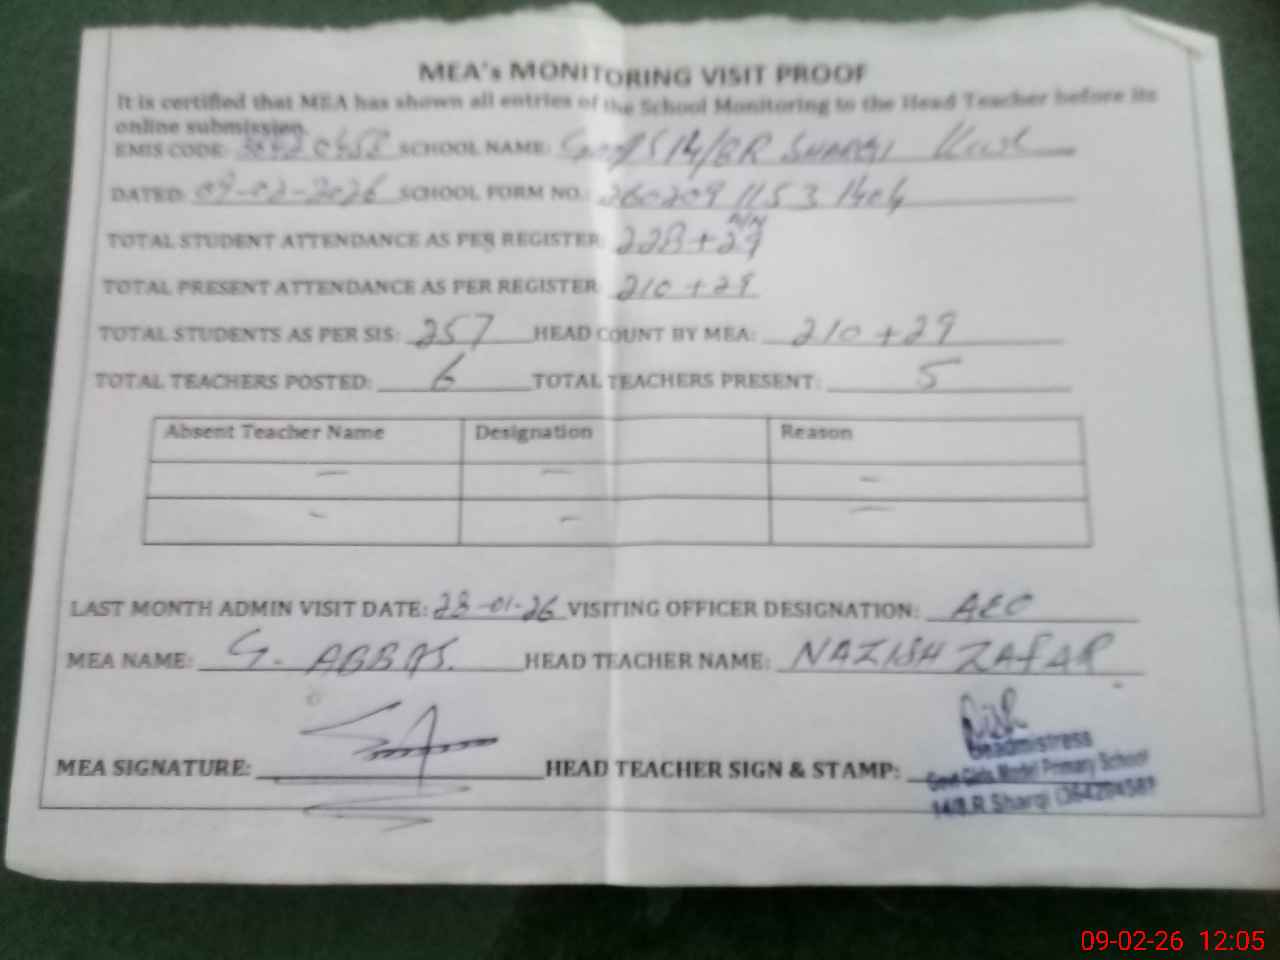 MEA's MONITORING VISIT PROOF
It is certified that MEA has shown all entries of the School Monitoring to the Head Teacher before its
online submission.
EMIS CODE: SCHOOL NAME: 14/8R SHARQI
DATED: 09-02-2026 SCHOOL FORM NO.: 260209 1153 1404
TOTAL STUDENT ATTENDANCE AS PER REGISTER: 228+29
TOTAL PRESENT ATTENDANCE AS PER REGISTER: 210+29
TOTAL STUDENTS AS PER SIS: 257 HEAD COUNT BY MEA: 210+29
TOTAL TEACHERS POSTED: 6 TOTAL TEACHERS PRESENT: 5
Absent Teacher Name Designation Reason
— — —
— — —
LAST MONTH ADMIN VISIT DATE: 28-01-26 VISITING OFFICER DESIGNATION: AEO
MEA NAME: G. ABBAS. HEAD TEACHER NAME: NAZISH ZAFAR
MEA SIGNATURE: HEAD TEACHER SIGN & STAMP:
Headmistress
Govt Girls Model Primary School
14/8.R Sharqi
09-02-26 12:05